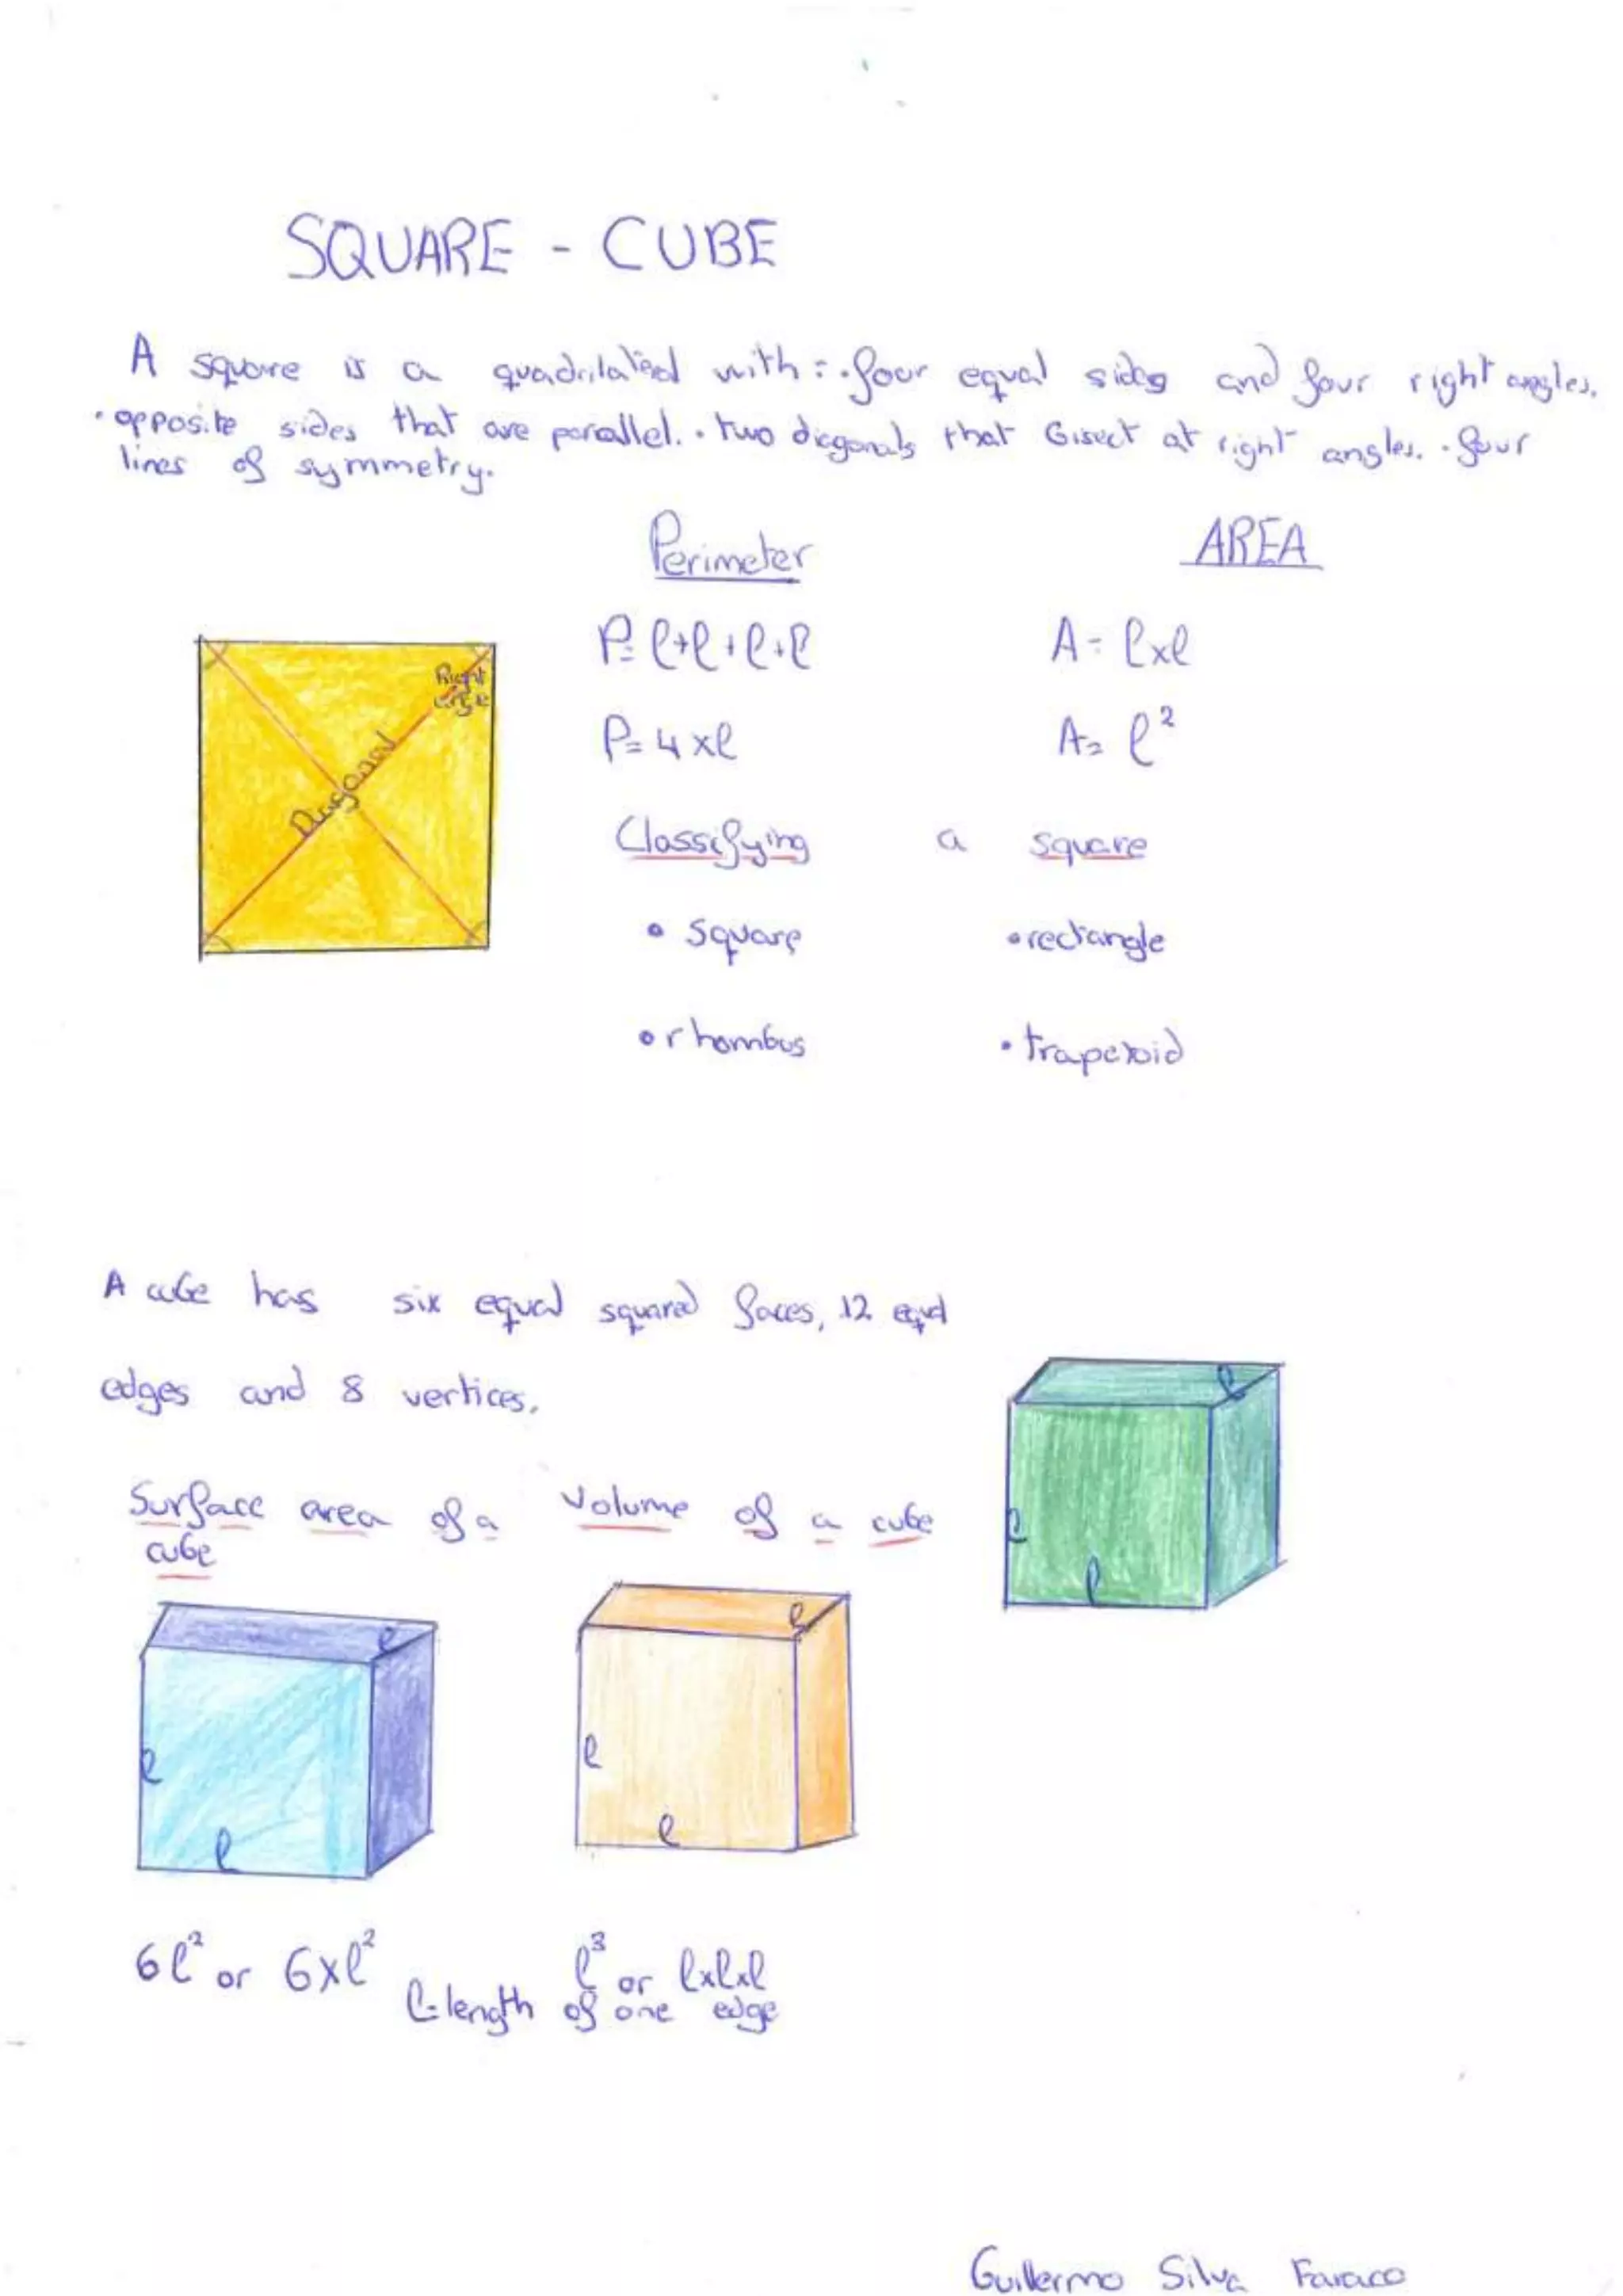 SQUARE - CUBE
A square is a quadrilateral with: · four equal sides and four right angles.
· opposite sides that are parallel. · two diagonals that bisect at right angles. · four
lines of symmetry.
Perimeter AREA
P= l+l+l+l A= lxl
P= 4xl A= l²
Right
angle
Diagonal
Classifying a square
• square • rectangle
• rhombus • trapezoid
A cube has six equal squared faces, 12 equal
edges and 8 vertices.
l
l
l
Surface area of a
cube
Volume of a cube
l
l
l
l
l
l
6l² or 6xl²
l³ or lxlxl
l=length of one edge
Guillermo Silva Faraco